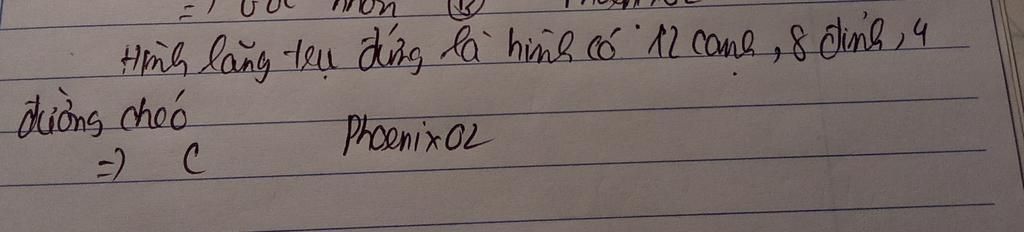 =) Góc nhọn (B) Phoenix02
Hình lăng trụ đứng là hình có 12 cạnh, 8 đỉnh, 4
đường chéo
=) C Phoenix02